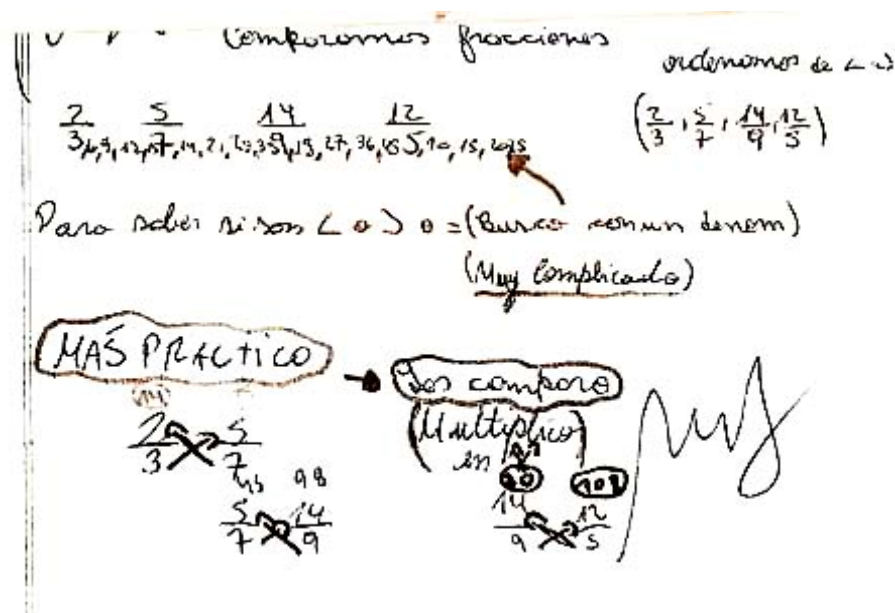 Comparamos fracciones
ordenamos de < a >
2/3 5/7 14/9 12/5
(2/3, 5/7, 14/9, 12/5)
Para saber si son < o > o = (Busco comun denom)
(Muy Complicado)
MAS PRACTICO
Los comparo
(Multiplico
en
2/3 5/7
45 98
5/7 14/9
108
14/9 12/5